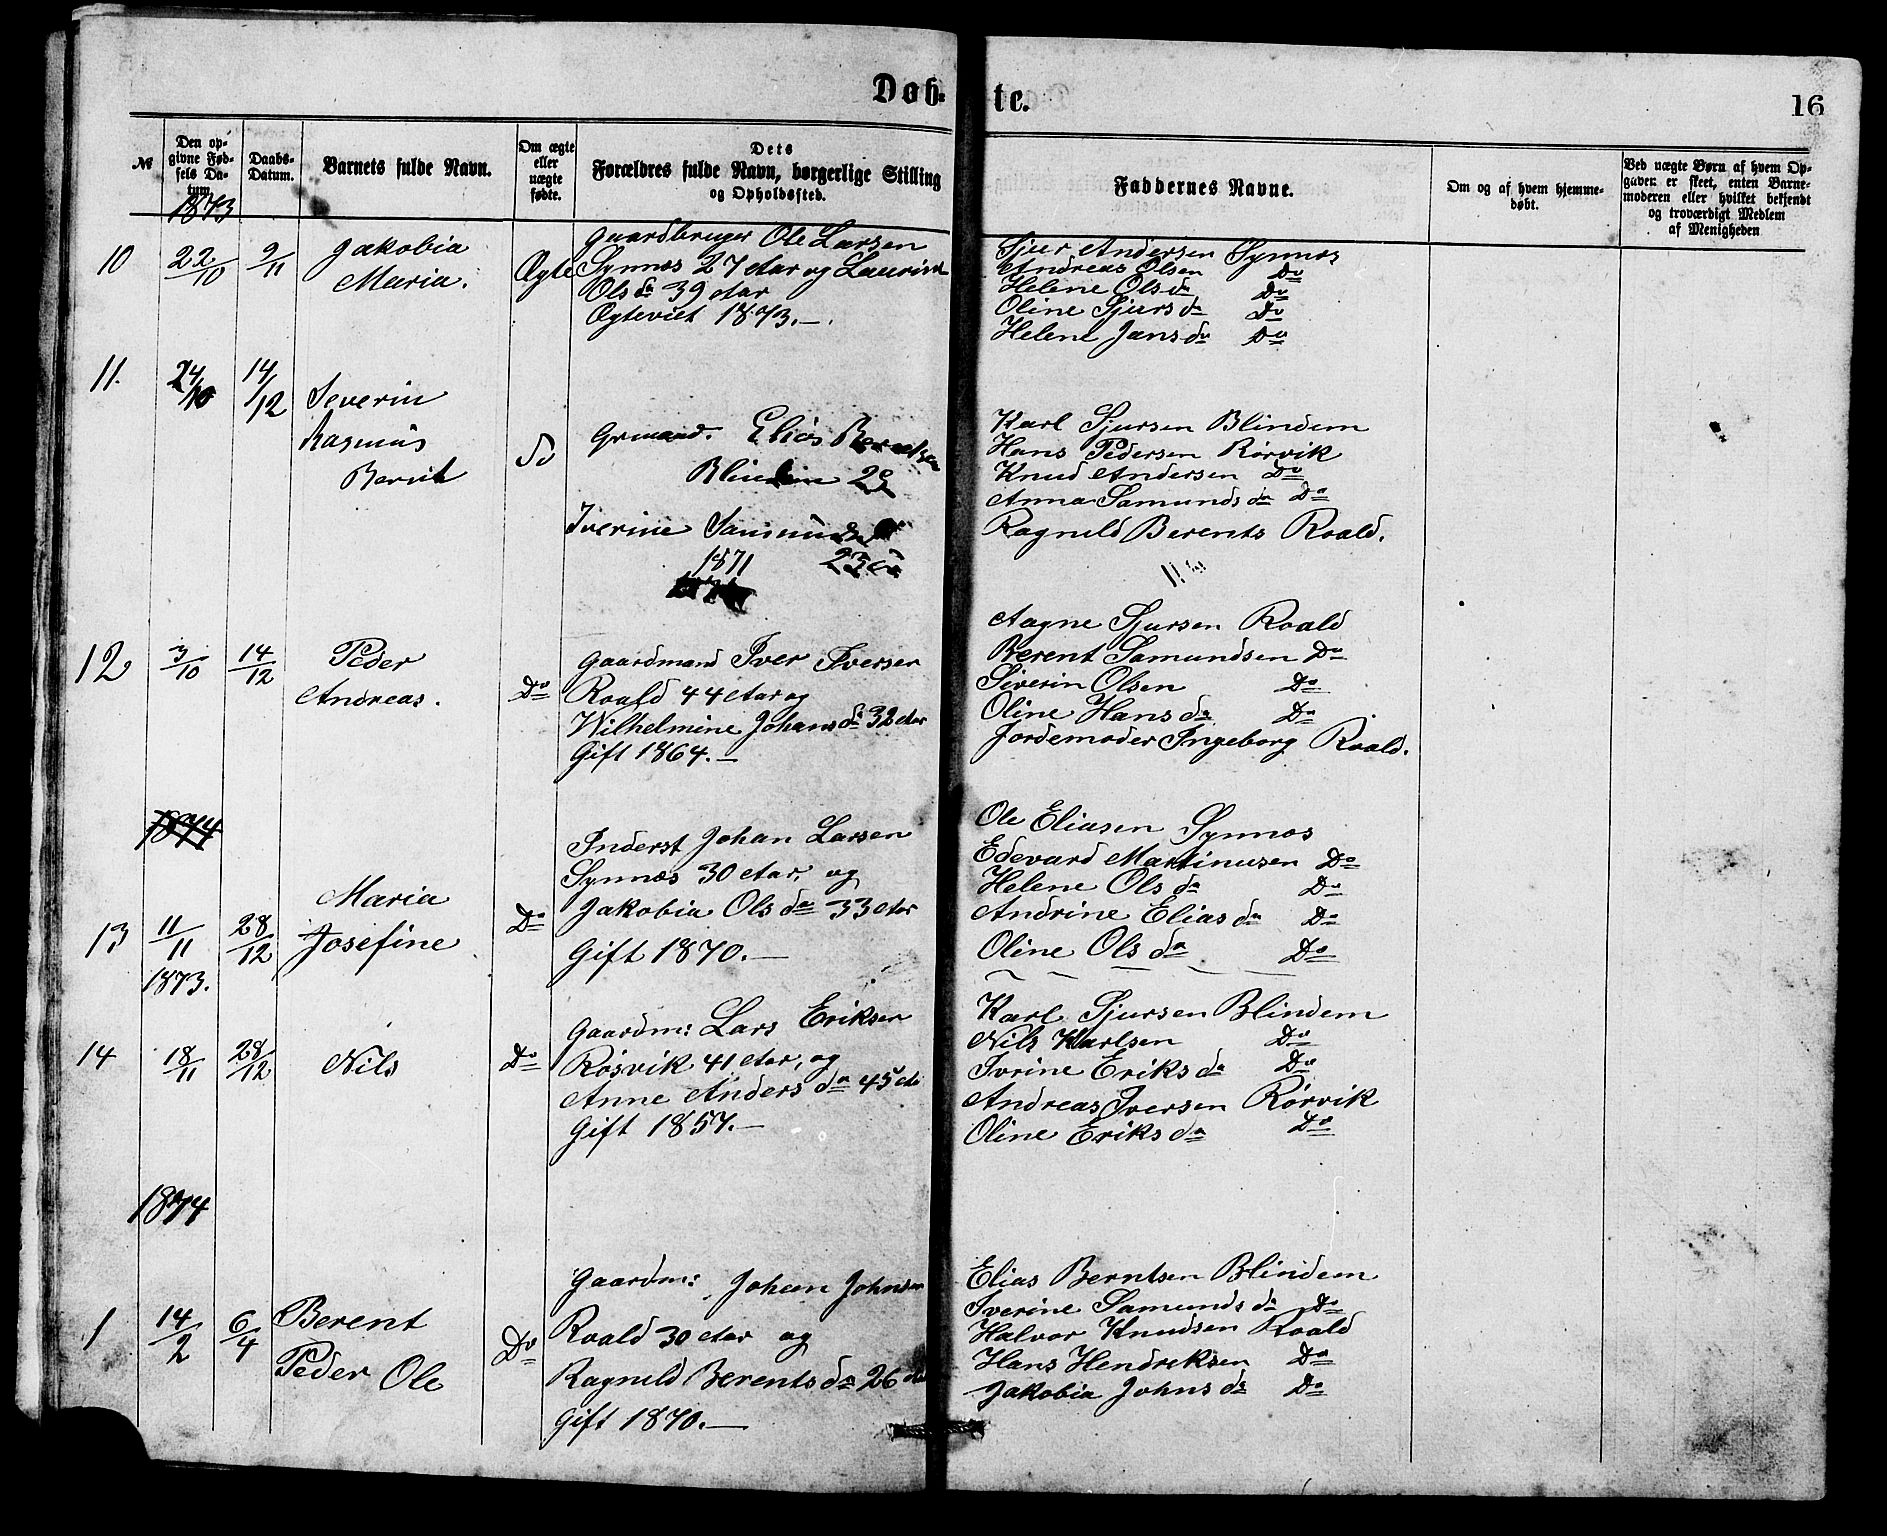 Døb-
te.
16
№
Den op-
givne Fød-
sels Da-
tum
1873
Daabs-
Datum.
Barnets fulde Navn.
Om ægte
eller
uægte
fødte.
Dets
Forældres fulde Navn, borgerlige Stilling
og Opholdssted.
Faddernes Navne.
Om og af hvem hjemme-
døbt.
Ved uægte Børn af hvem Op-
gaven er skeet, enten Barne-
moderen eller hvilket bekjendt
og troværdigt Medlem
af Menigheden
10
22/10
9/11
Jakobia
Maria.
Ægte
Gaardbruger Ole Larsen
Synnes 27 Aar og Laurine
Olsda 39 Aar
Ægteviet 1873.—
Sjur Andersen Synnes
Andreas Olsen Do
Helene Olsda Do
Oline Sjursda Do
Helene Jansda Do
11.
24/10
14/12
Severin
Rasmus
Bernt
Do
Grmand. Elias Berntsen
Blindem 29
Iverine Samunds
1871 23
Karl Sjursen Blindem
Hans Pedersen Rørvik
Knud Andersen Do
Anna Samundsda Do
Ragnild Berents Roald.
12
3/10
14/12
Peder
Andreas.
Do
Gaardmand Iver Iversen
Roald 44 Aar og
Wilhelmine Johansda 32 Aar
Gift 1864.—
Aagne Sjursen Roald
Berent Samundsen Do
Siverin Olsen Do
Oline Hansda Do
Jordemoder Ingeborg Roald.
1874
13
11/11
1873.
28/12
Maria
Josefine
Do
Inderst Johan Larsen
Synnes 30 Aar, og
Jakobia Olsda 33 Aar
Gift 1870.—
Ole Eliasen Synnes
Edevard Martinusen Do
Helene Olsda Do
Andrine Eliasda Do
Oline Olsda Do
14
18/11
28/12
Nils
Do
Gaardm: Lars Eriksen
Røsvik 41 Aar, og
Anne Andersda 45 A
Gift 1857.—
Karl Sjursen Blindem
Nils Karlsen Do
Ivrine Eriksda Do
Andreas Iversen Rørvik
Oline Eriksda Do
1874
1
14/2
6/4
Berent
Peder Ole
Do
Gaardm: Johan Johnsen
Roald 30 Aar og
Ragnild Berentsda 26 Aar
Gift 1870.—
Elias Berntsen Blindem
Iverine Samundsda Do
Halvor Knudsen Roald
Hans Hendriksen Do
Jakobia Johnsda Do